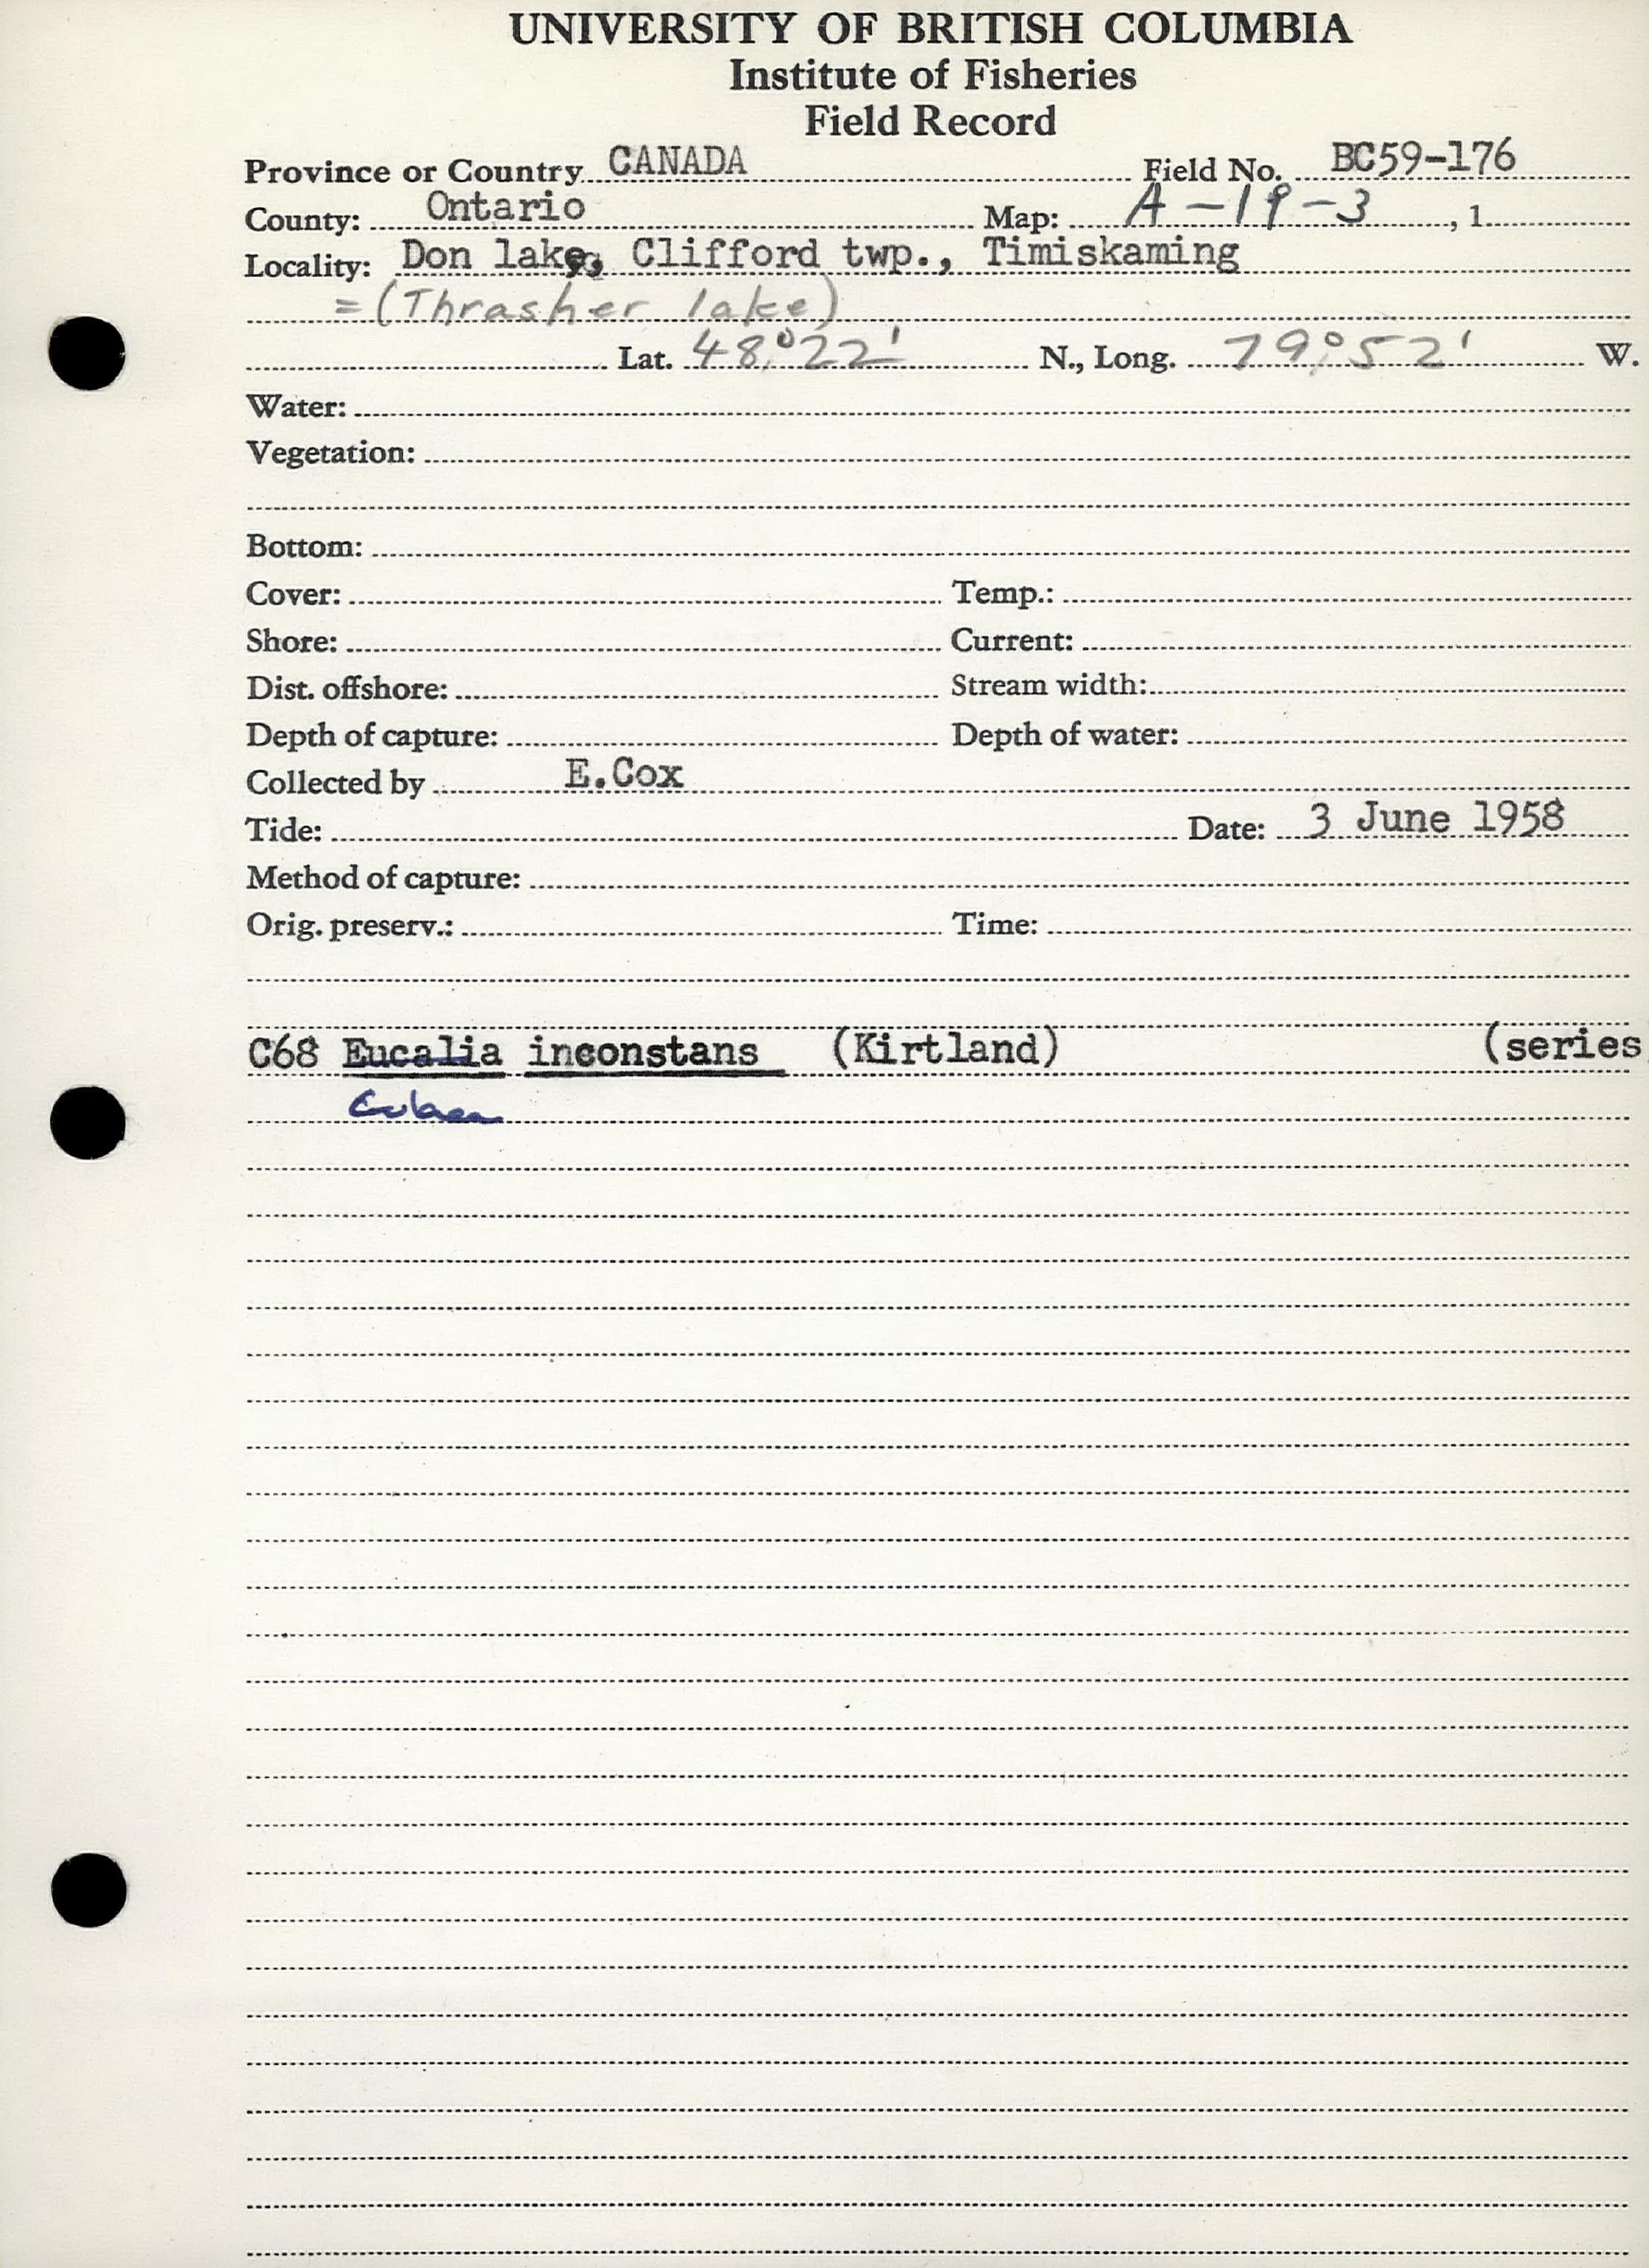 UNIVERSITY OF BRITISH COLUMBIA
Institute of Fisheries
Field Record
Province or Country CANADA Field No. BC59-176
County: Ontario Map: A-19-3, 1
Locality: Don lake, Clifford twp., Timiskaming
=(Thrasher lake)
Lat. 48°22' N., Long. 79°52' W.
Water:
Vegetation:
Bottom:
Cover: Temp.:
Shore: Current:
Dist. offshore: Stream width:
Depth of capture: Depth of water:
Collected by E.Cox
Tide: Date: 3 June 1958
Method of capture:
Orig. preserv.: Time:
C68 Eucalia inconstans (Kirtland) (series
Culaea